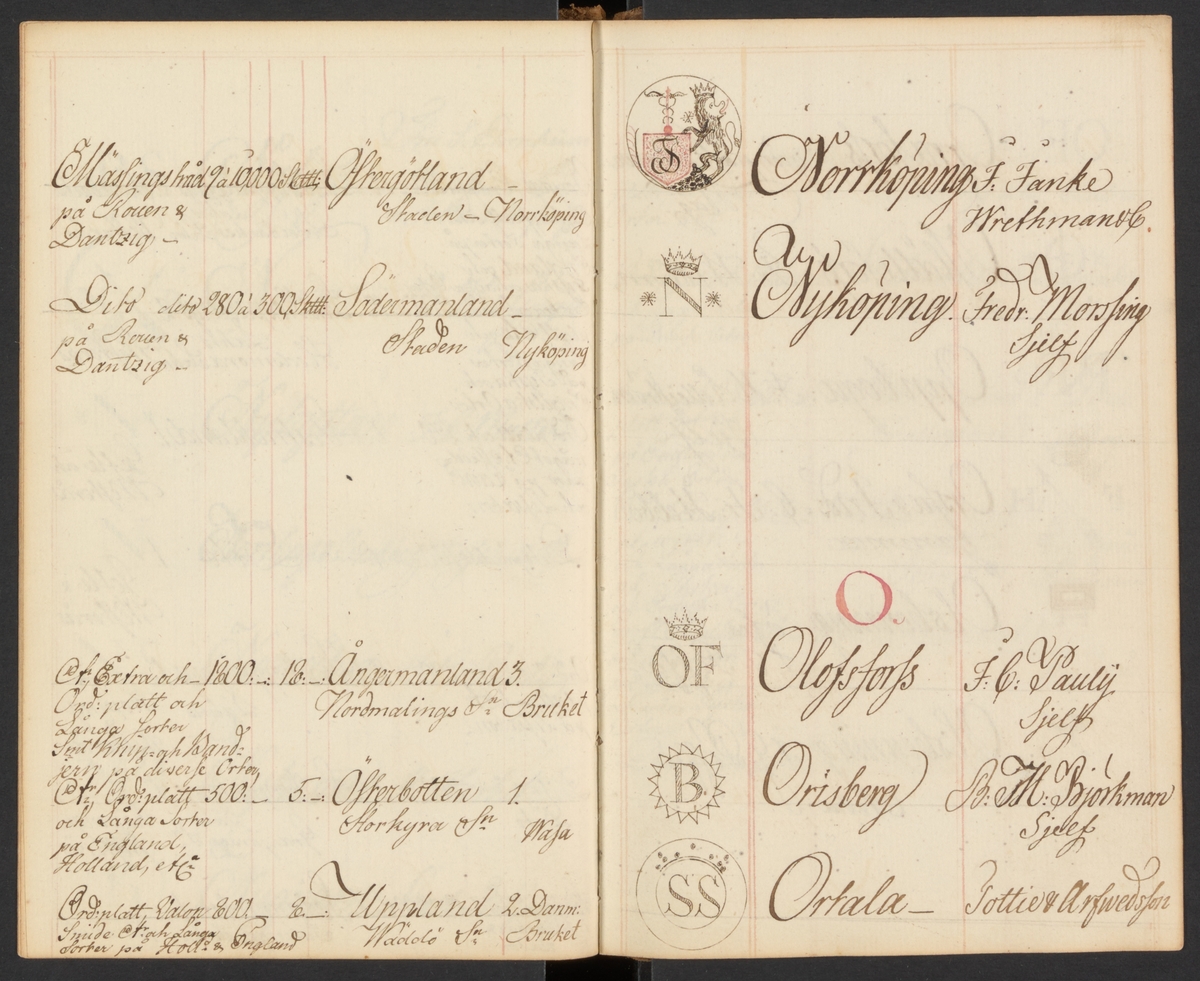 Mässingstråd 9 à 10000 Sktt: Östergötland
på Rouen &
Staden – Norrköping
Dantzig –
Dito dito 280 à 300 Sktt: Södermanland –
på Rouen &
Staden Nyköping
Dantzig –
Extra och – 1800:–: 18:–: Ångermanland 3.
Ord: platt och
Nordmalings Sn Bruket
Långa Sorter
Samt Knip- och Band-
jern på diverse Orter,
Ord: platt 500:– 5:–: Österbotten 1.
och Långa Sorter
Storkyra Sn Wasa
på England,
Holland, etca
Ord: platt, Valon 800:– 8:–: Uppland 2. Danm:
Smide och Långa
Wäddö Sn Bruket
Sorter på Holl: & England
F
Norrköping F: Fanke
Wrethman & C.
N
Nyköping Fredr: Morssing
Sjelf
O.
OF
Olofsforss F: C: Pauly
Sjelf
B.
Orisberg B: M: Björkman
Sjelf
SS
Ortala – Tottie & Arfwedsson